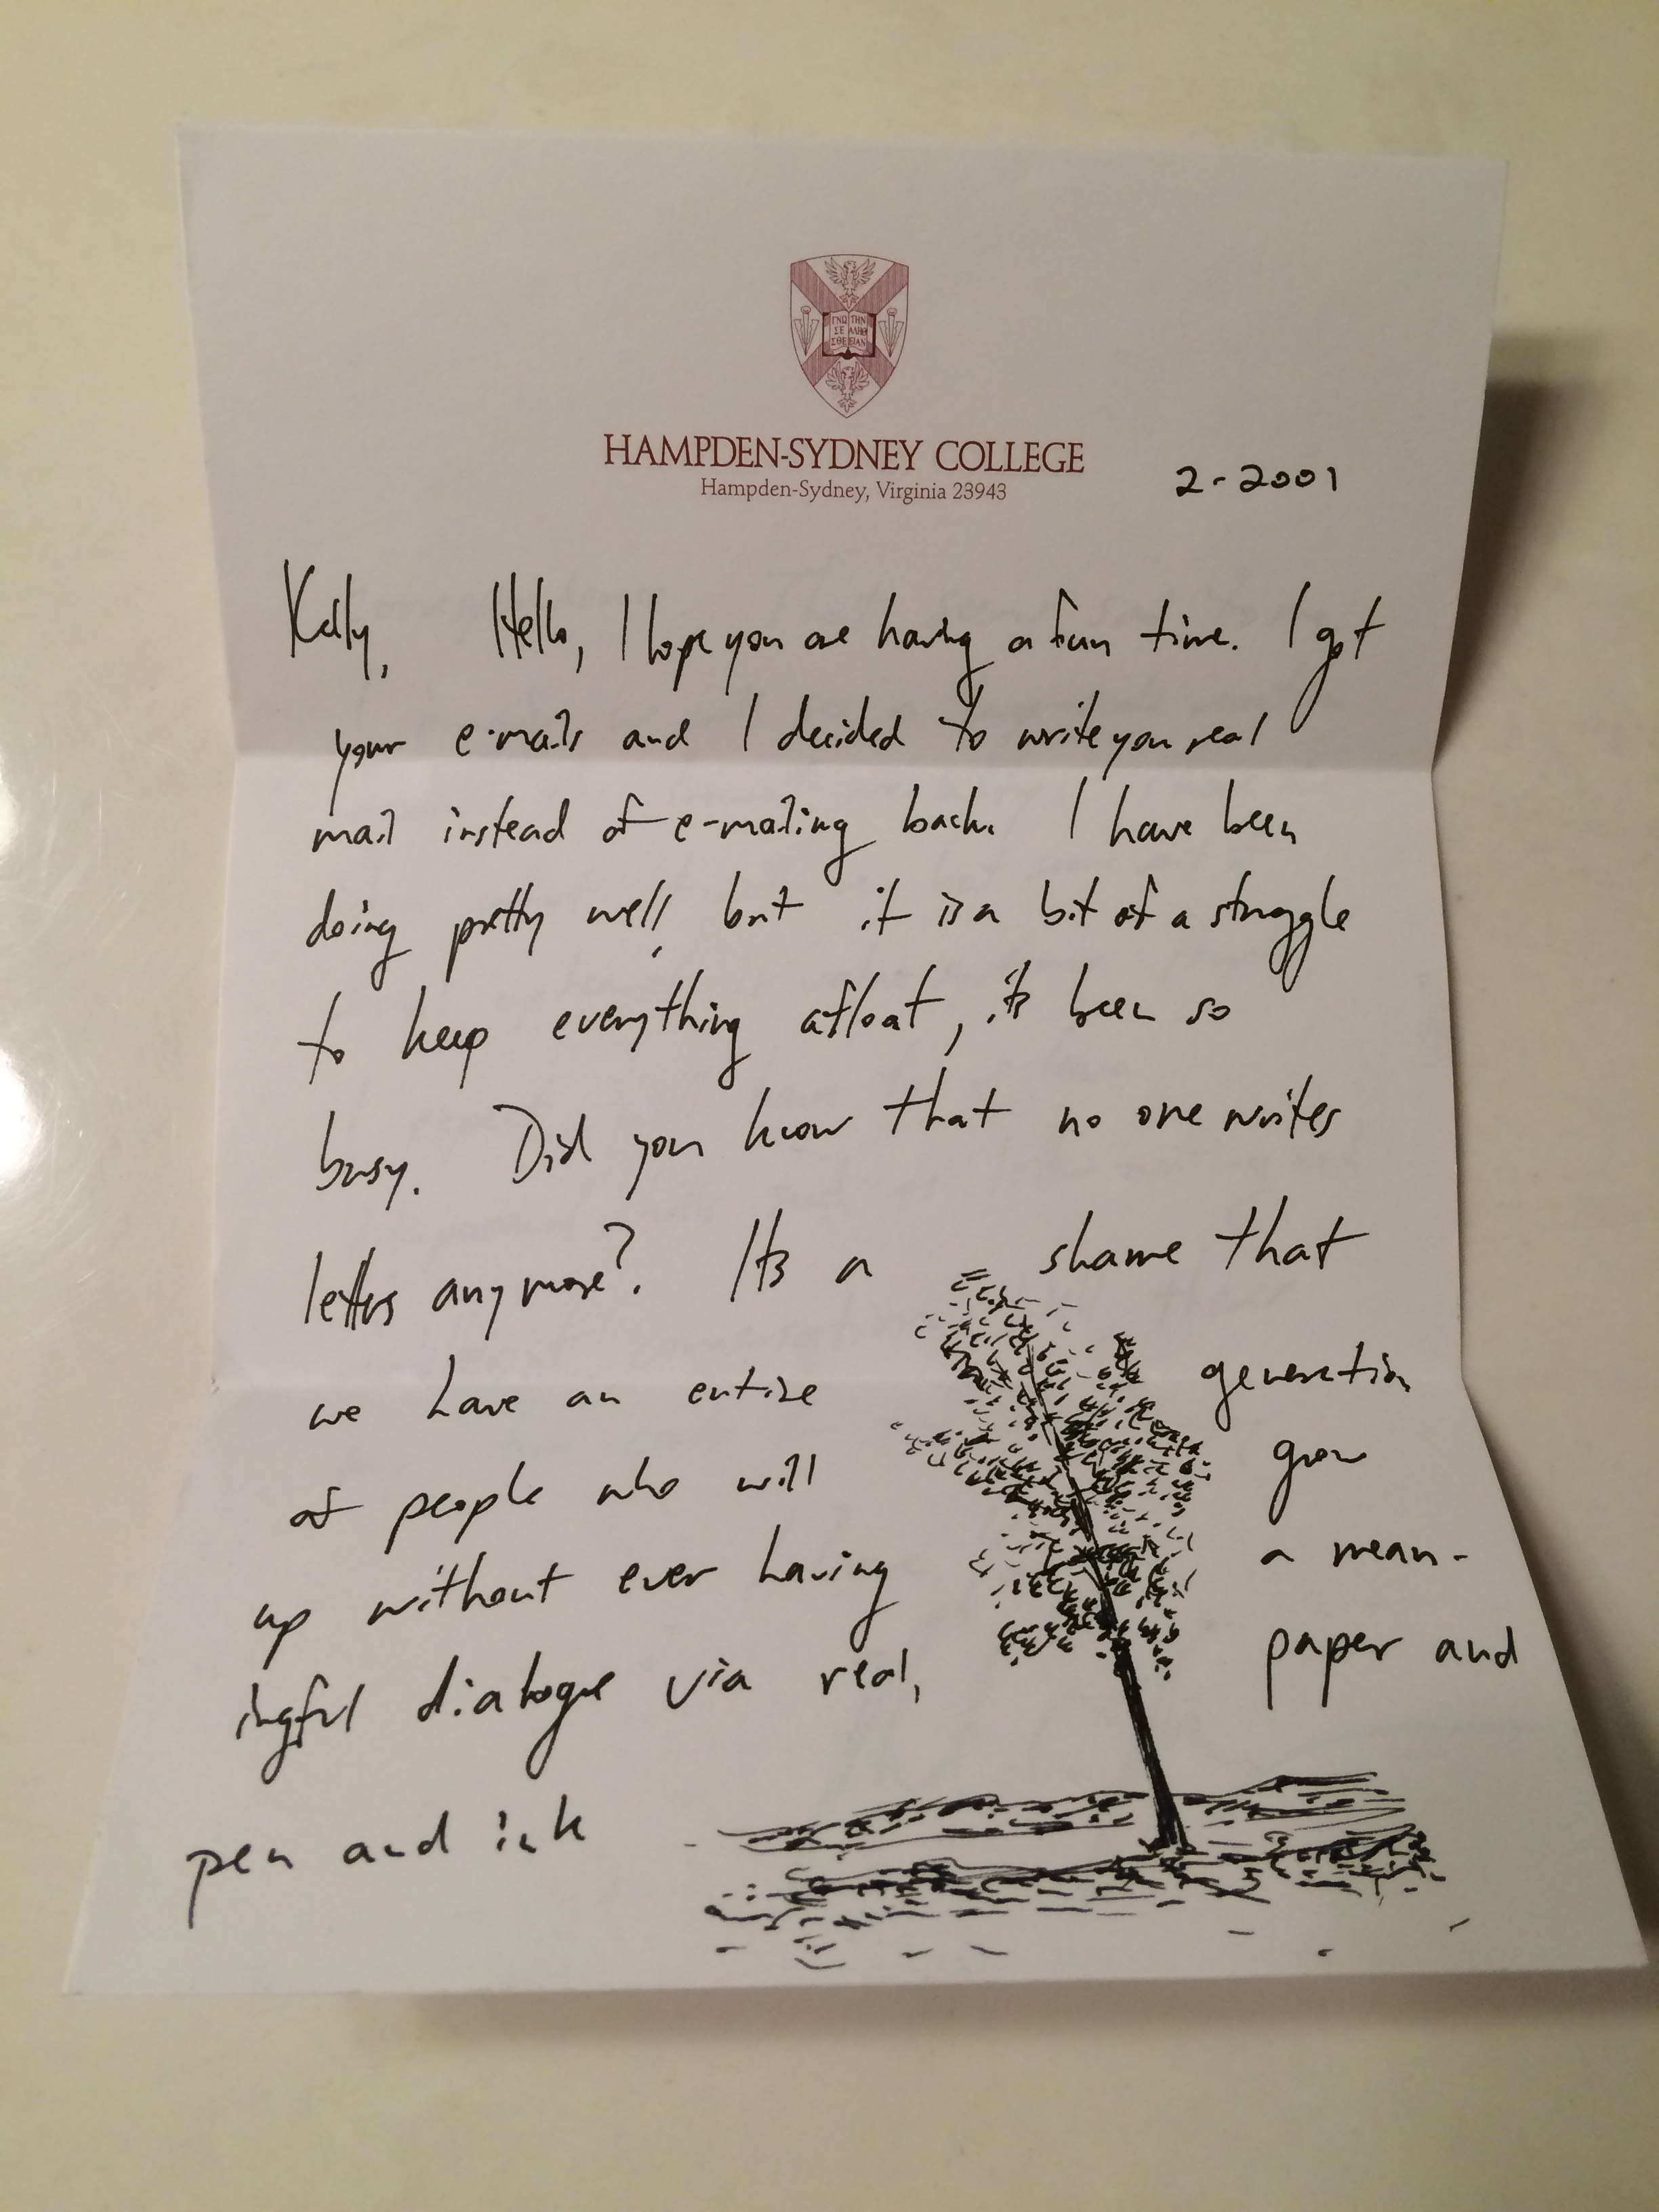 ΓΝΩ ΤΗΝ
ΣΕ ΑΛΗΘ
ΣΘΕ ΕΙΑΝ
HAMPDEN-SYDNEY COLLEGE
Hampden-Sydney, Virginia 23943
2-2001
Kelly, Hello, I hope you are having a fun time. I got
your e-mails and I decided to write you real
mail instead of e-mailing back. I have been
doing pretty well, but it is a bit of a struggle
to keep everything afloat, its been so
busy. Did you know that no one writes
letters anymore? Its a shame that
we have an entire generation
of people who will grow
up without ever having a mean-
ingful dialogue via real, paper and
pen and ink